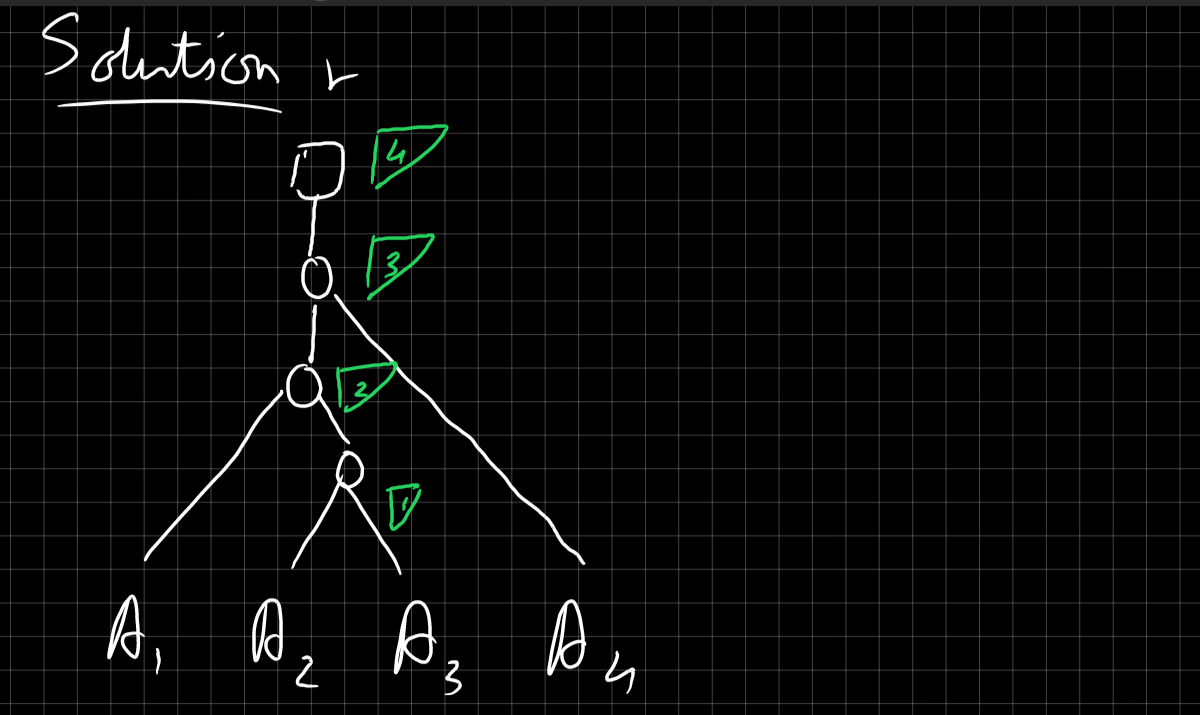 Solution
4
3
2
1
A₁ A₂ A₃ A₄